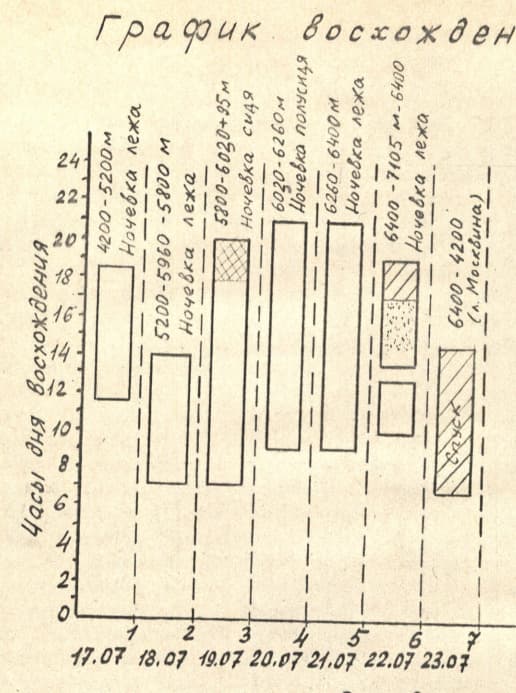 График восхожден
Часы дня восхождения
24
22
20
18
16
14
12
10
8
6
4
2
0
4200-5200м
Ночевка лежа
5200-5960-5800 м
Ночевка лежа
5800-6020+85м
Ночевка сидя
6020-6260м
Ночевка полусидя
6260-6400м
Ночевка лежа
6400-7105м-6400
Ночевка лежа
6400-4200
(л. Москвина)
Спуск
1 2 3 4 5 6 7
17.07 18.07 19.07 20.07 21.07 22.07 23.07